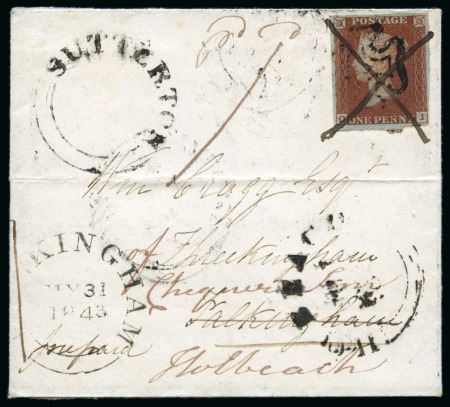 SUTTERTON
POSTAGE
ONE PENNY
I
Wm Cragg Esqr
of Threekingham
Chequers Inn
Falkingham
Holbeach
KINGHAM
31
1843
prepaid